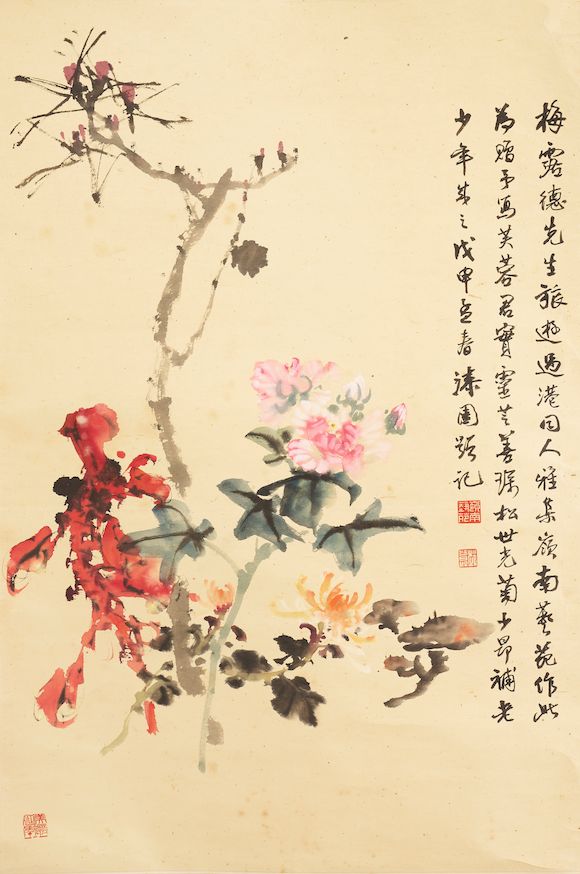 梅露德先生旅遊過港同人雅集嶺南藝苑作此
為贈予寫芙蓉君實靈芝善琛松世光菊少昂補老
少年成之戊申孟春漆園題記